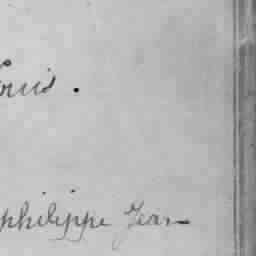 ouis.
philippe Jean